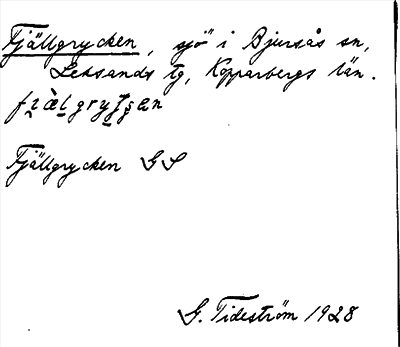 Fjällgrycken, sjö i Bjursås sn,
Leksands tg, Kopparbergs län.
Fjällgrycken GS
G. Tideström 1928